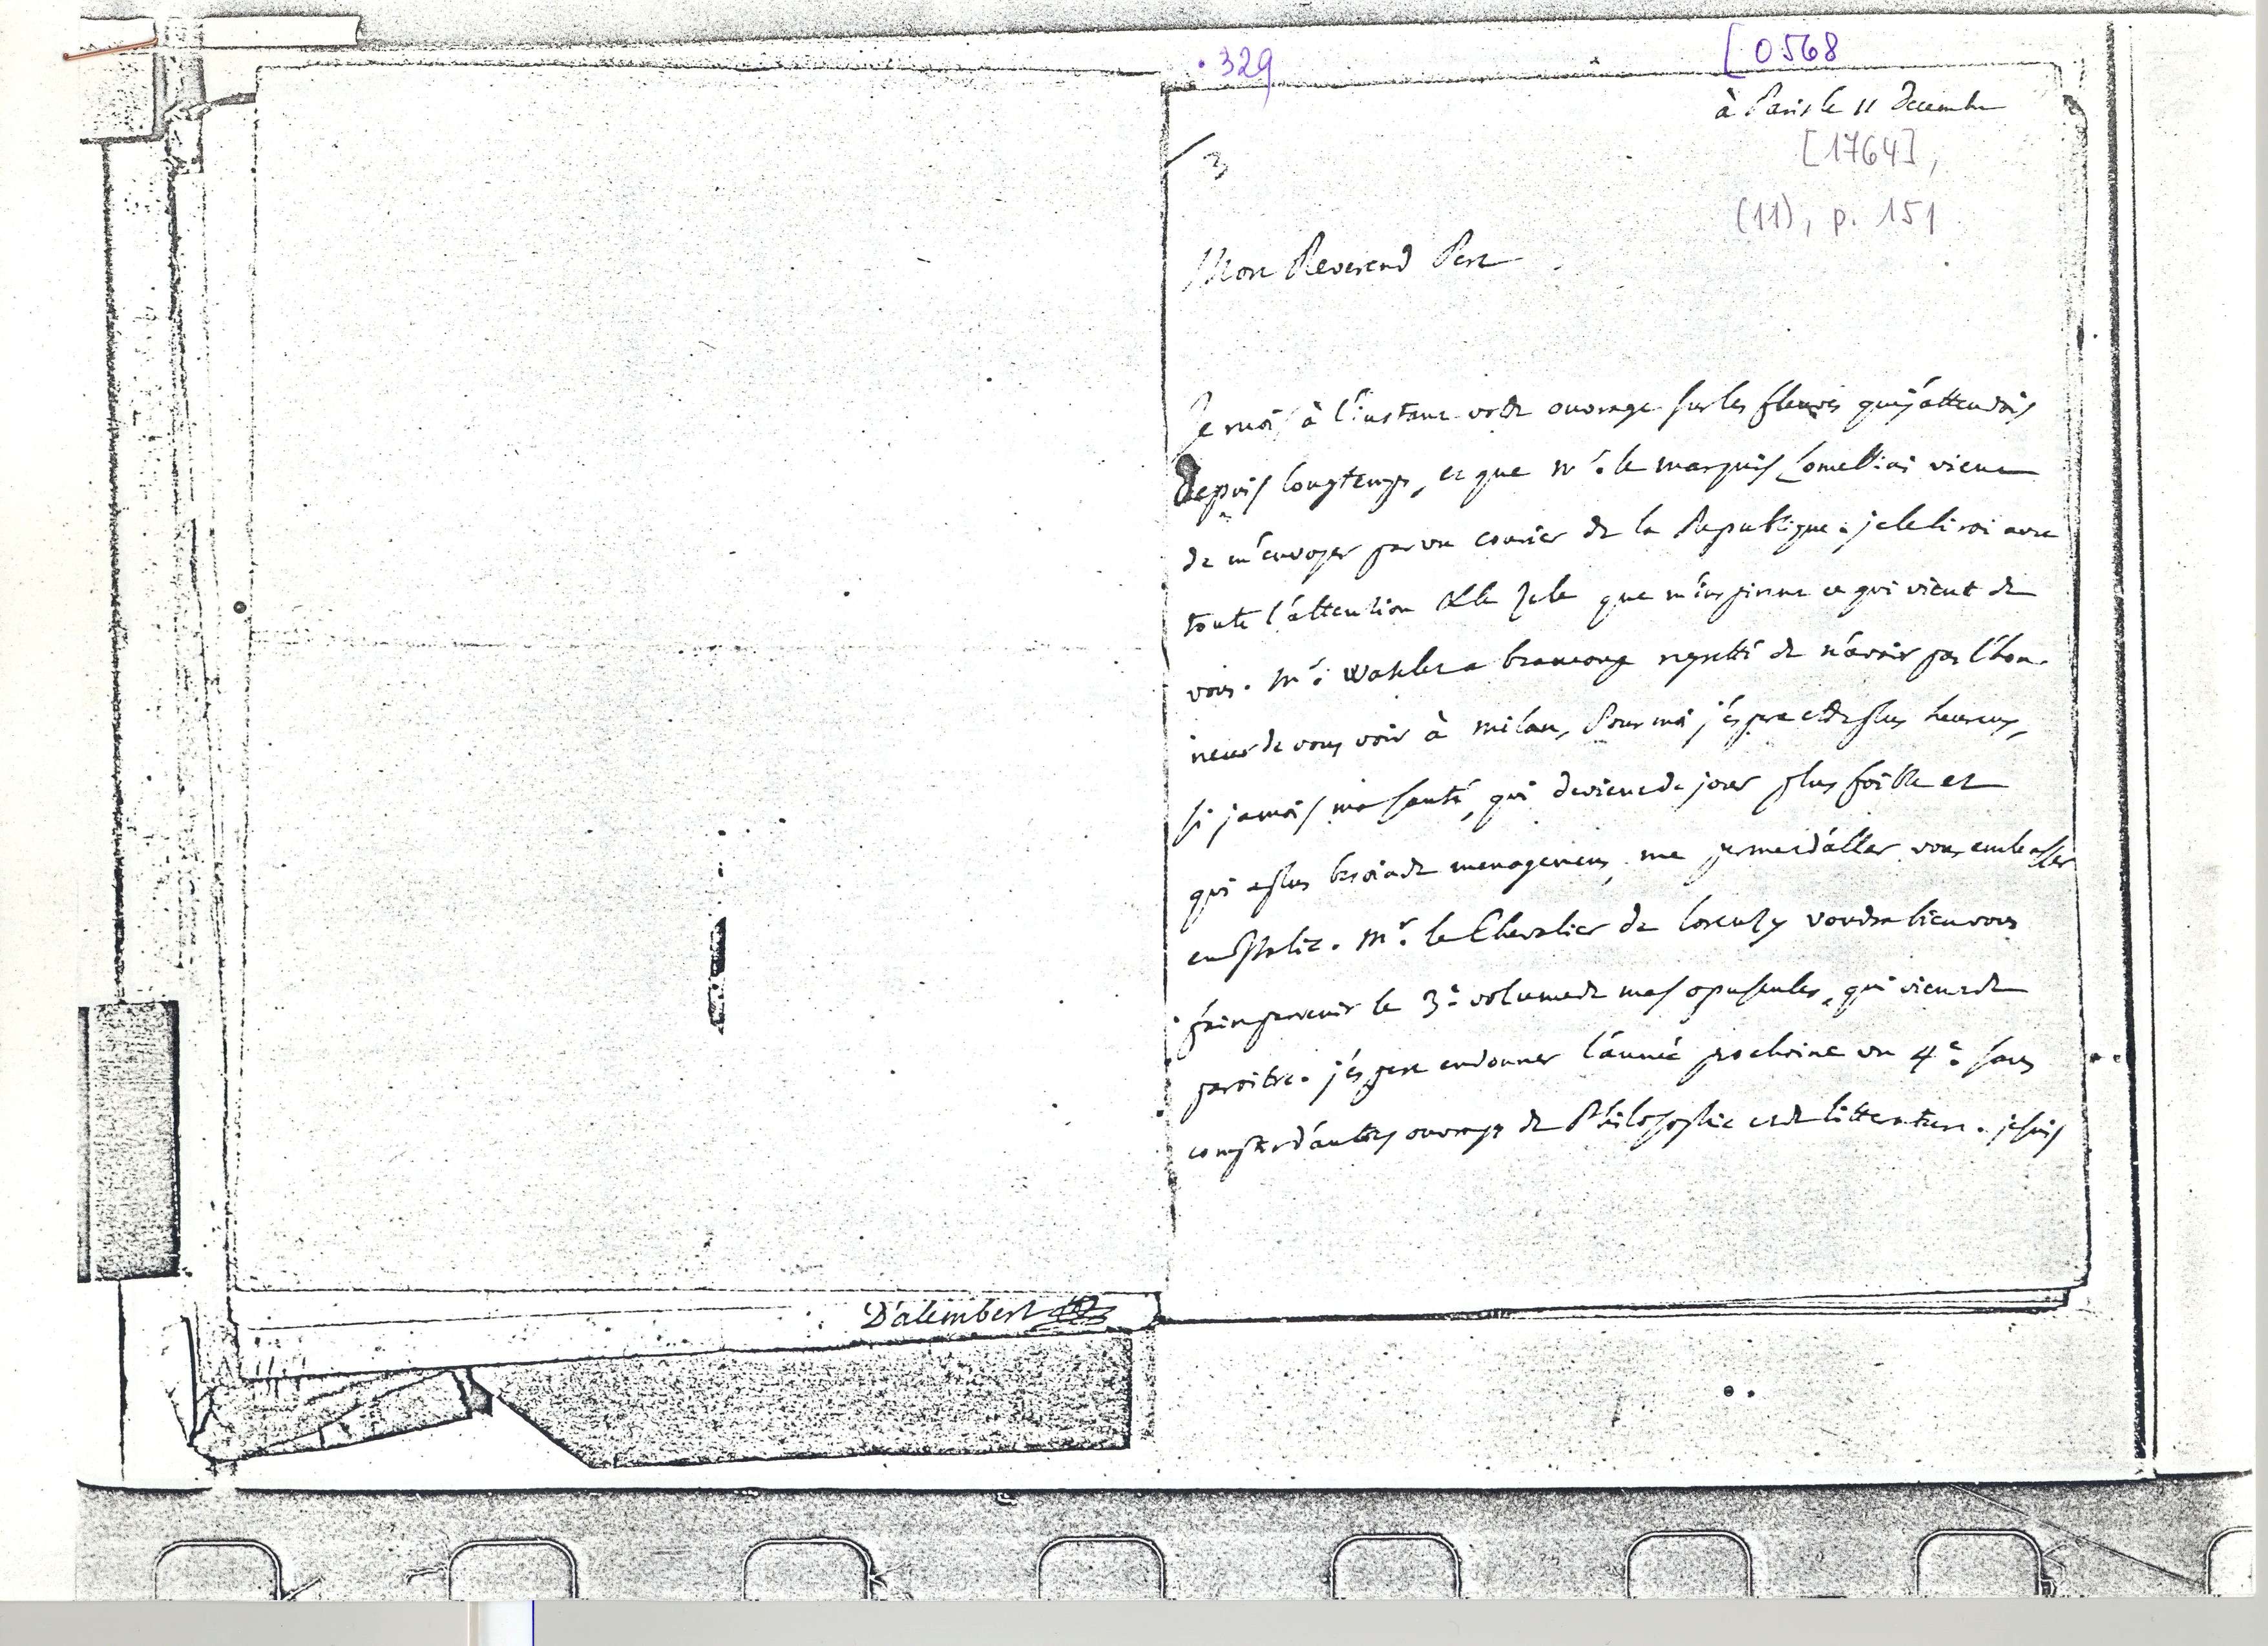 . 329
[0568
à Paris le 11 Decembre
[1764],
3
(11), p. 151
Mon Reverend Pere
Je reçois à l'instant votre ouvrage sur les fleuves que j'attendois
depuis longtemps, et que Mr. le marquis Lomellini vient
de m'envoyer par un courier de la Republique. je le lirai avec
toute l'attention & le zele que m'inspirent ce qui vient de
vous. Mr. Watelet a beaucoup regretté de n'avoir pas l'hon-
neur de vous voir à Milan, Pour moi j'éspere etre plus heureux,
si jamais ma santé, qui devient de jour plus foible et
qui a plus besoin de menagemens, me permet d'aller vous embrasser
en Italie. Mr. le Chevalier de Lorenzy voudra bien vous
faire parvenir le 3e. volume de mes opuscules, qui vient de
paroitre. j'éspere en donner l'année prochaine un 4e. sans
compter d'autres ouvrages de Philosophie et de litterature. je suis
D'alembert